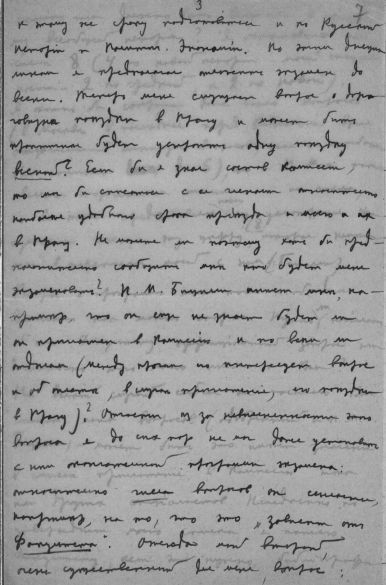 3
7
к тому же сроку подготовиться и по Русской
истории и Полит. Экономии. По этим
и предполагал отложить экзамен до
весны. Теперь меня смущает вопрос о
поездки в Прагу и может быть
будет устроить одну поездку
весной? Если бы я знал состав Комиссии,
то мог бы списаться с ее членами относительно
наиболее удобного срока приезда и моего и их
в Прагу. Не можете ли поэтому хотя бы пред-
положительно сообщить мне кто будет меня
экзаменовать? И. М. пишет мне, на-
пример, что он еще не знает будет ли
он приглашен в Комиссию и по всем ли
отделам (между прочим он интересуется вопросом
и об оплате, в случае приглашения, его поездки
в Прагу)? Отчасти из за невыясненности этого
вопроса я до сих пор не мог даже установить
с ним окончательной программы экзамена:
относительно числа вопросов он ссылается,
например, на то, что это "зависит от
Факультета". Отсюда мой второй,
очень существенный для меня вопрос